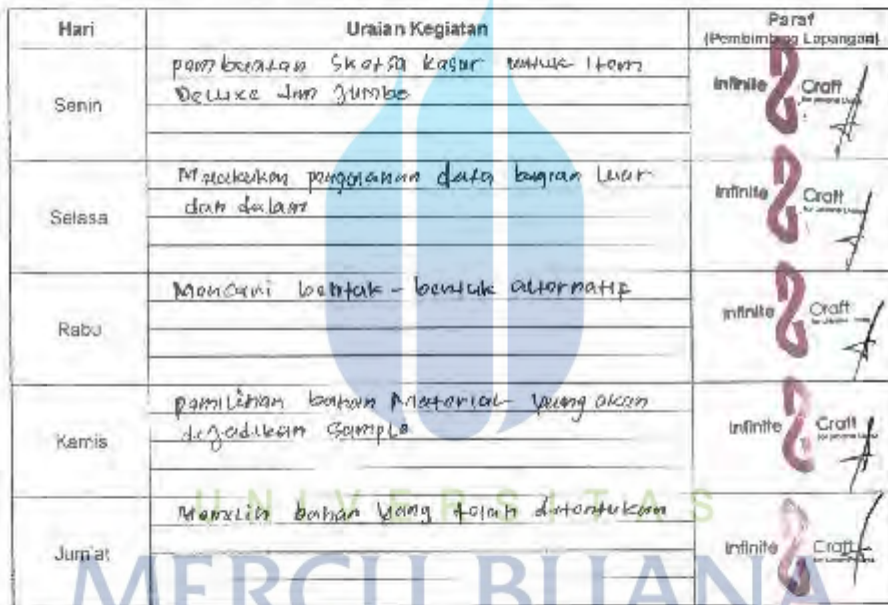 Hari Uraian Kegiatan Paraf
(Pembimbing Lapangan)
Senin
pembuatan Sketsa kasar untuk Item
Deluxe dan Jumbo
Infinite Craft
Selasa
Melakukan data bagian luar
dan dalam
Infinite Craft
Rabu
Mencari bentuk - bentuk alternatif
Infinite Craft
Kamis
pemilihan bahan Material yang akan
dijadikan Sample
Infinite Craft
Jum'at
Memilih bahan yang telah ditentukan
Infinite Craft
UNIVERSITAS
MERCU BUANA